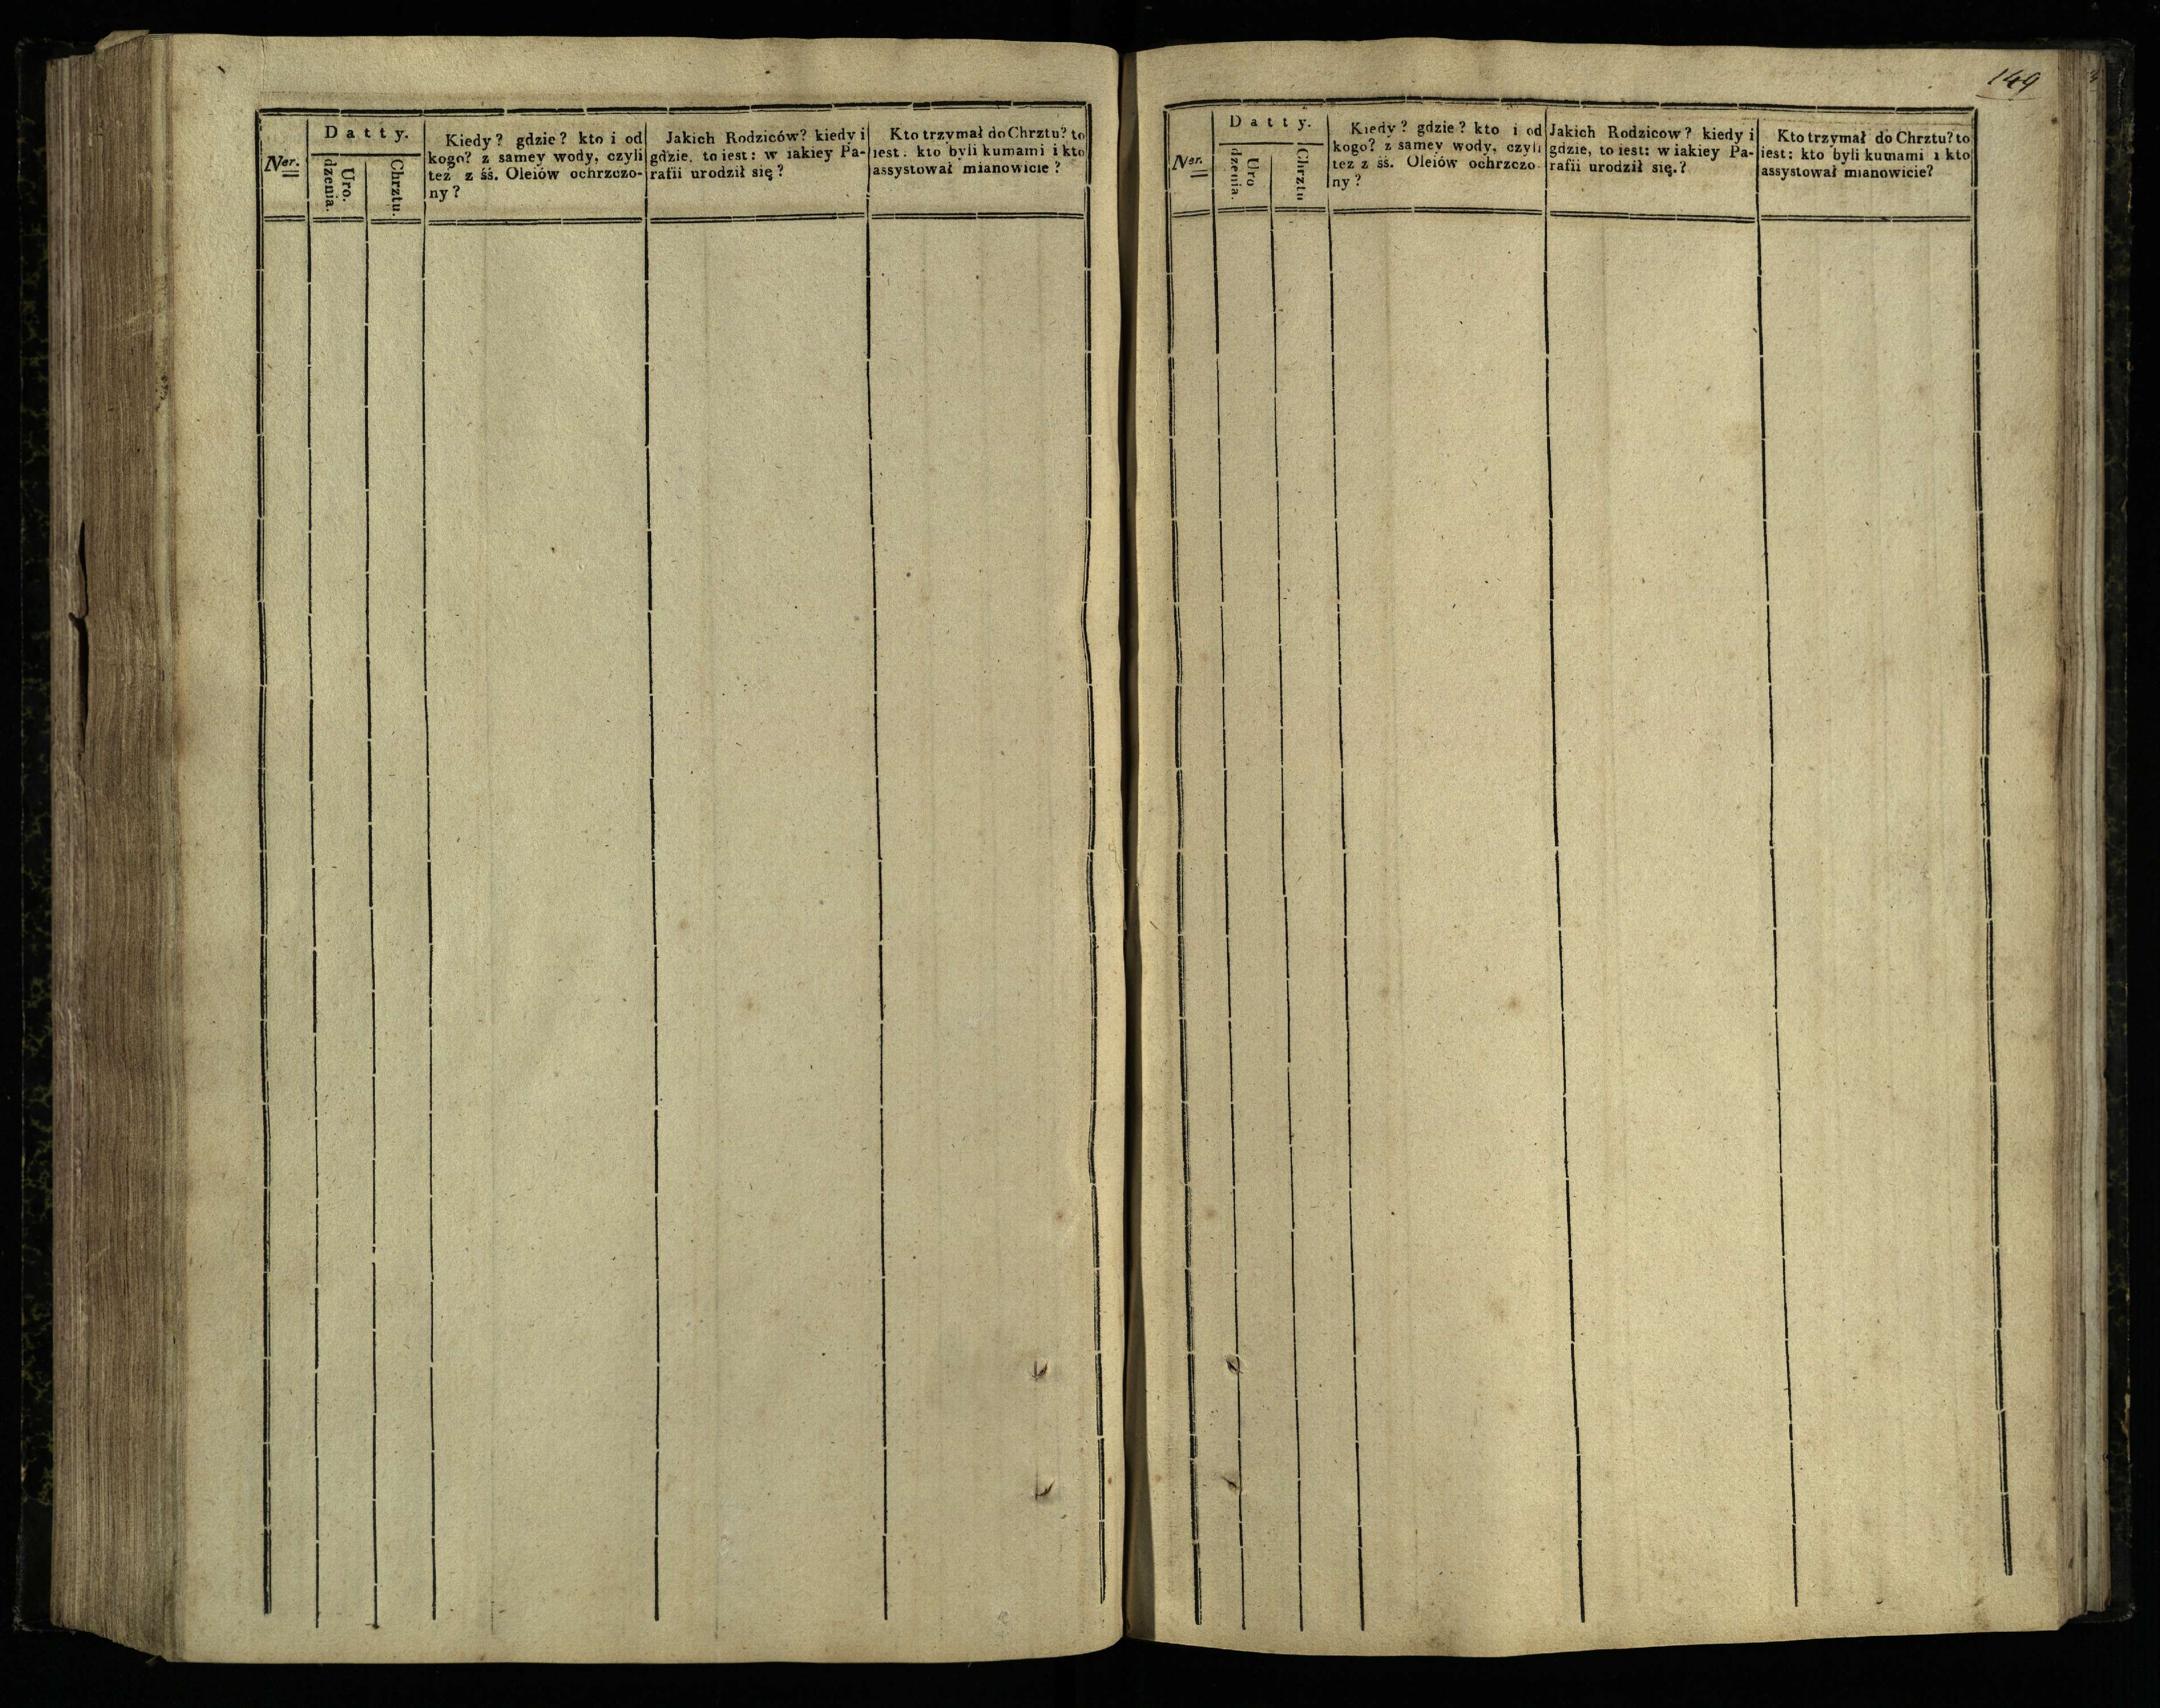 Ner.
Datty.
Uro.
dzenia.
Chrztu.
Kiedy? gdzie? kto i od
kogo? z samey wody, czyli
tez z śś. Oleiów ochrzczo-
ny?
Jakich Rodziców? kiedy i
gdzie, to iest: w iakiey Pa-
rafii urodził się?
Kto trzymał do Chrztu? to
iest: kto byli kumami i kto
assystował mianowicie?
149
Ner.
Datty.
Uro
dzenia.
Chrztu
Kiedy? gdzie? kto i od
kogo? z samey wody, czyli
tez z śś. Oleiów ochrzczo-
ny?
Jakich Rodziców? kiedy i
gdzie, to iest: w iakiey Pa-
rafii urodził się.?
Kto trzymał do Chrztu? to
iest: kto byli kumami i kto
assystował mianowicie?